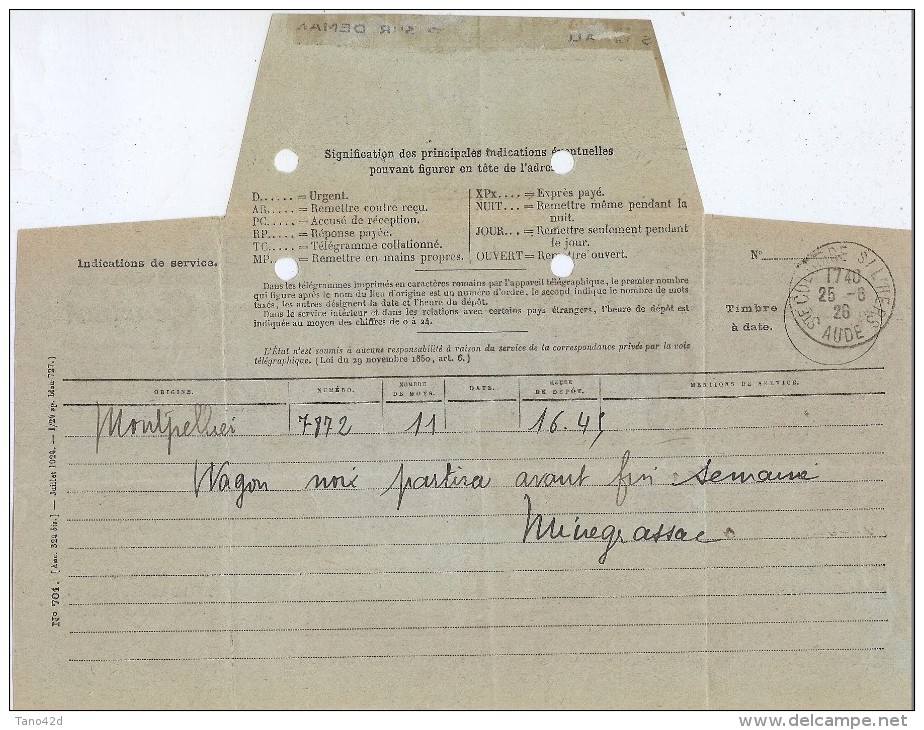 SUR DEMAN
Signification des principales indications éventuelles
pouvant figurer en tête de l'adres
D..... = Urgent.
AR.... = Remettre contre reçu.
PC.... = Accusé de réception.
RP.... = Réponse payée.
TC.... = Télégramme collationné.
MP.... = Remettre en mains propres.
XPx.... = Exprès payé.
NUIT... = Remettre même pendant la
nuit.
JOUR... = Remettre seulement pendant
le jour.
OUVERT = Remettre ouvert.
Indications de service.
Dans les télégrammes imprimés en caractères romains par l'appareil télégraphique, le premier nombre
qui figure après le nom du lieu d'origine est un numéro d'ordre, le second indique le nombre de mots
taxés, les autres désignent la date et l'heure du dépôt.
Dans le service intérieur et dans les relations avec certains pays étrangers, l'heure de dépôt est
indiquée au moyen des chiffres de 0 à 24.
L'État n'est soumis à aucune responsabilité à raison du service de la correspondance privée par la voie
télégraphique. (Loi du 29 novembre 1850, art. 6.)
N°
Timbre
à date.
STE COL DE S/L'HERS
17 40
25 - 6
26
AUDE
ORIGINE. NUMÉRO. NOMBRE DE MOTS. DATE. HEURE DE DÉPÔT. MENTIONS DE SERVICE.
Montpellier 7872 11 16.45
Wagon noir partira avant fin semaine
N° 701. [Anc. 324 bis.] — Juillet 1924. —
Tano42d
delcampe.net